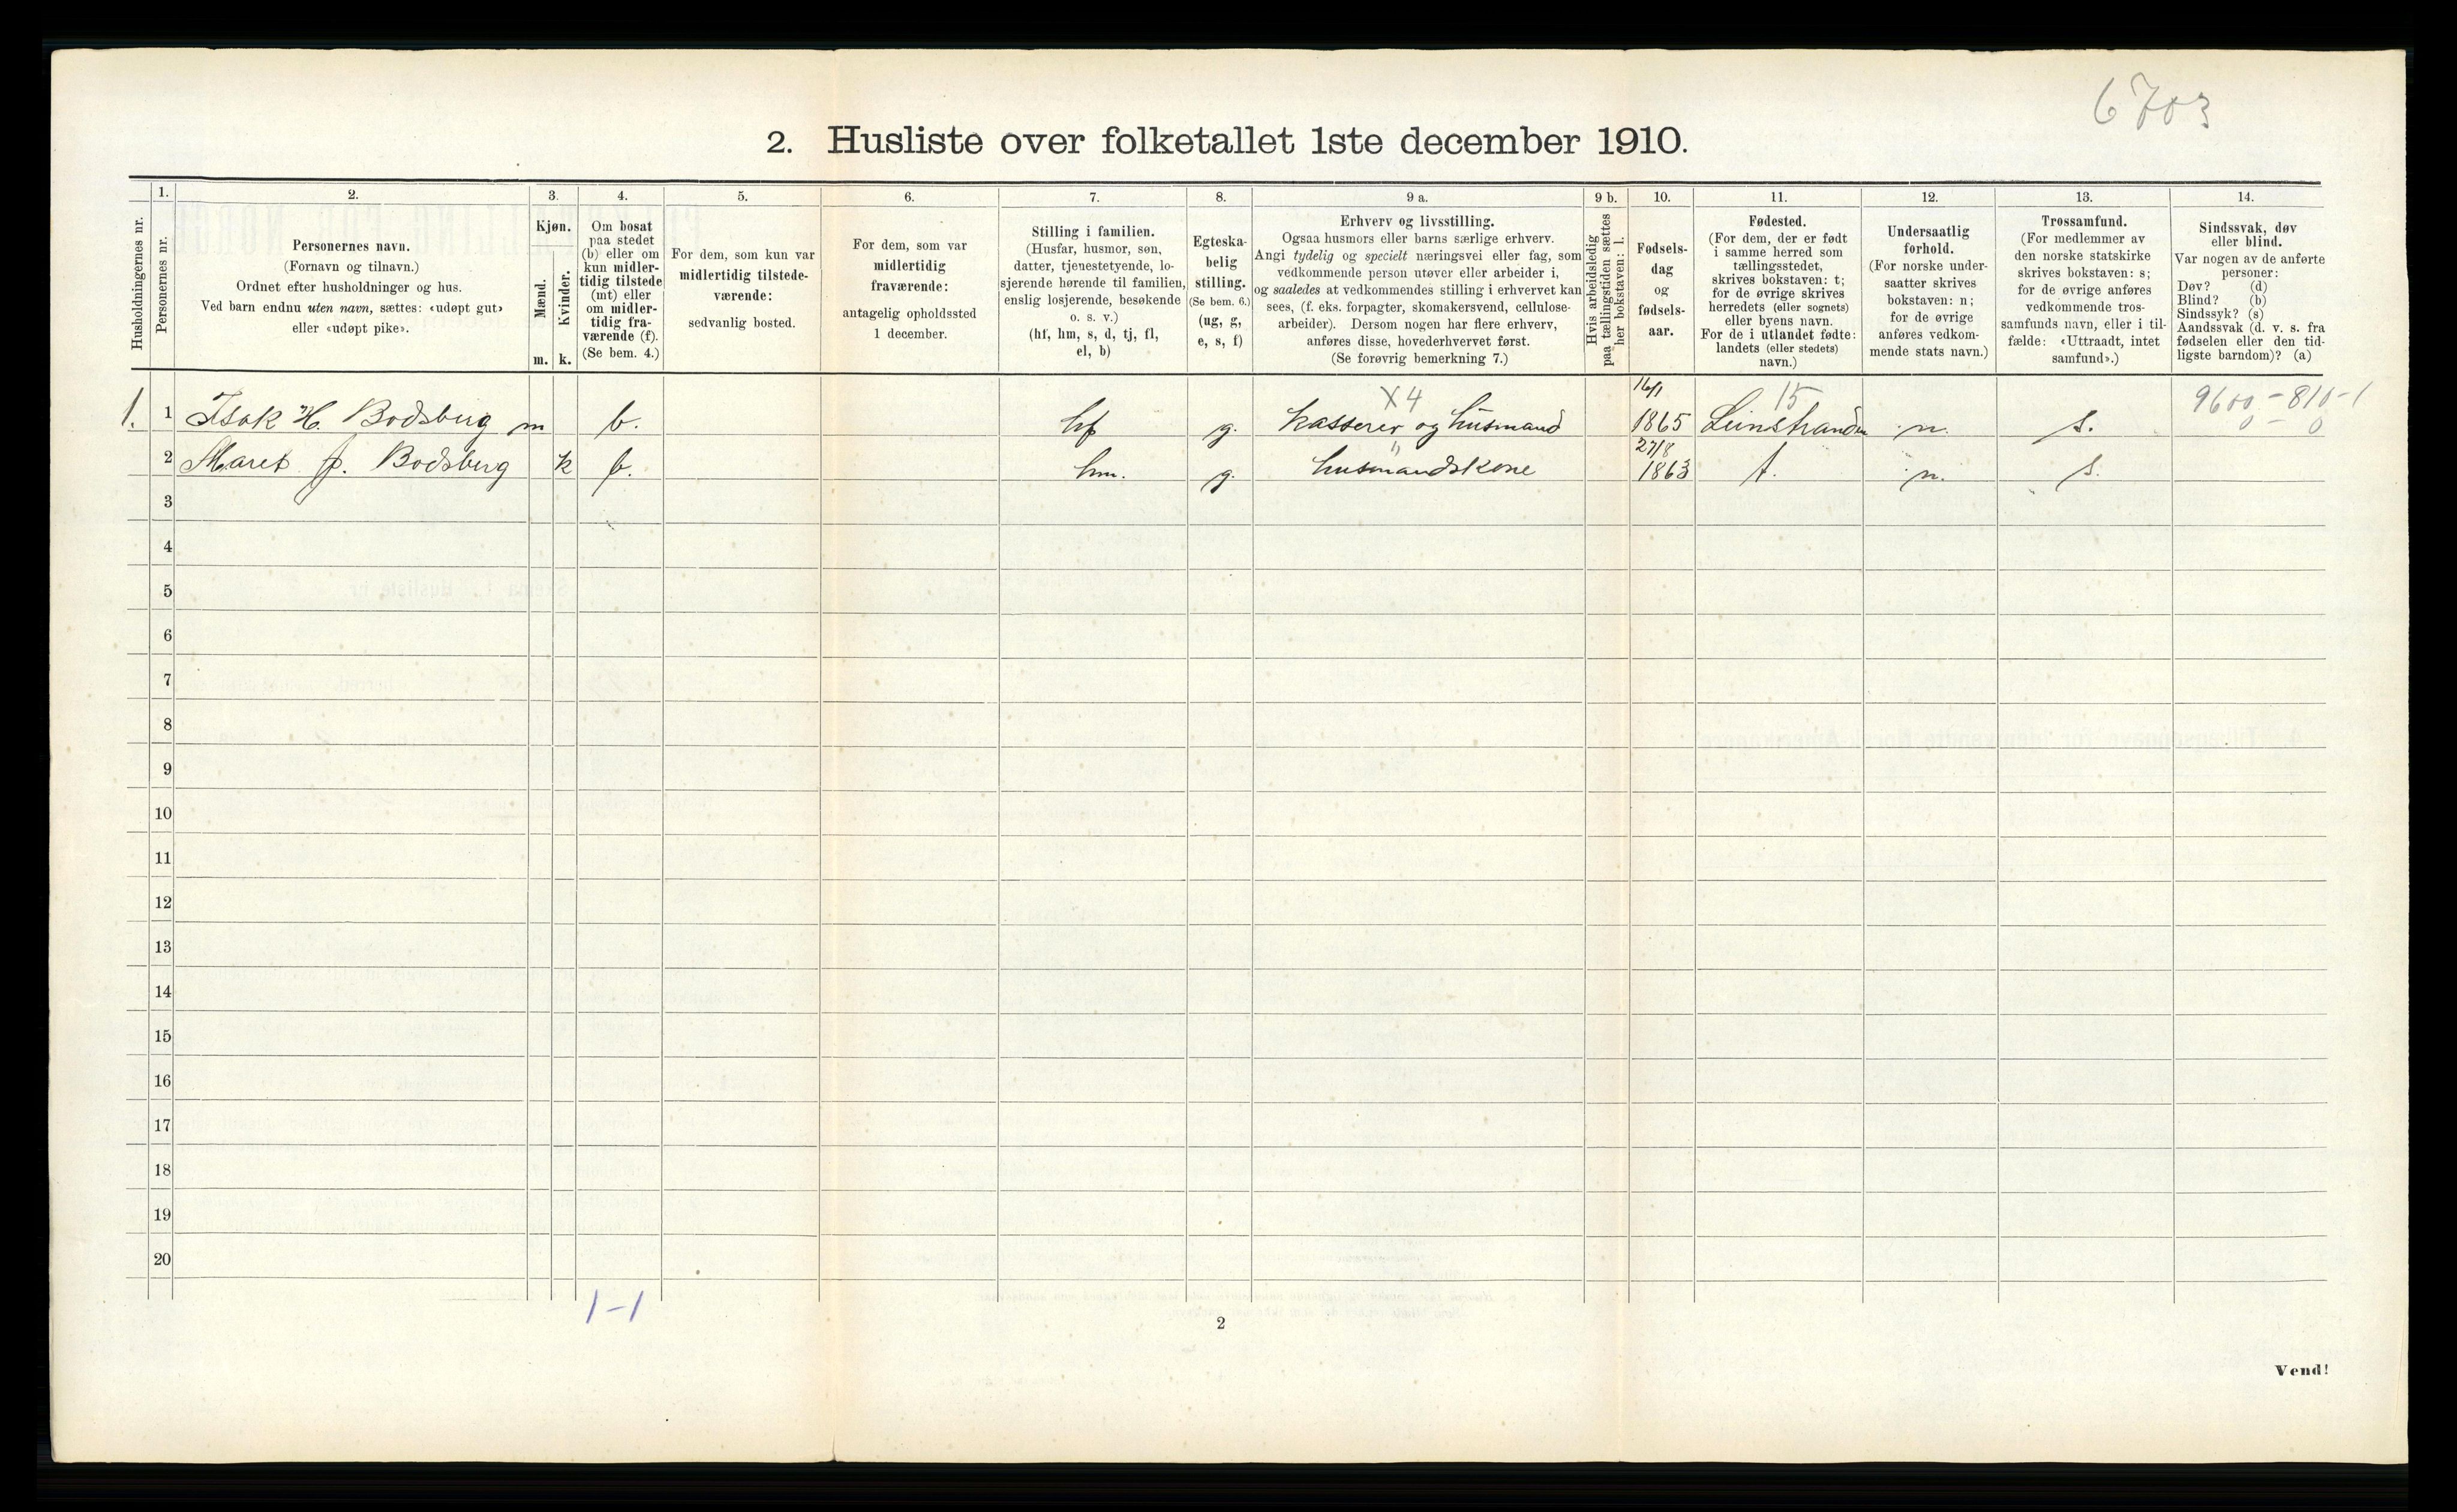 6703
2. Husliste over folketallet 1ste december 1910.
Husholdningernes nr.
1.
Personernes nr.
2.
Personernes navn.
(Fornavn og tilnavn.)
Ordnet efter husholdninger og hus.
Ved barn endnu uten navn, sættes: «udøpt gut»
eller «udøpt pike».
3.
Kjøn.
Mænd.
m.
Kvinder.
k.
4.
Om bosat
paa stedet
(b) eller om
kun midler-
tidig tilstede
(mt) eller
om midler-
tidig fra-
værende (f).
(Se bem. 4.)
5.
For dem, som kun var
midlertidig tilstede-
værende:
sedvanlig bosted.
6.
For dem, som var
midlertidig
fraværende:
antagelig opholdssted
1 december.
7.
Stilling i familien.
(Husfar, husmor, søn,
datter, tjenestetyende, lo-
sjerende hørende til familien,
enslig losjerende, besøkende
o. s. v.)
(hf, hm, s, d, tj, fl,
el, b)
8.
Egteska-
belig
stilling.
(Se bem. 6.)
(ug, g,
e, s, f)
9 a.
Erhverv og livsstilling.
Ogsaa husmors eller barns særlige erhverv.
Angi tydelig og specielt næringsvei eller fag, som
vedkommende person utøver eller arbeider i,
og saaledes at vedkommendes stilling i erhvervet kan
sees, (f. eks. forpagter, skomakersvend, cellulose-
arbeider). Dersom nogen har flere erhverv,
anføres disse, hovederhvervet først.
(Se forøvrig bemerkning 7.)
9 b.
Hvis arbeidsledig
paa tællingstiden sættes
her bokstaven: l.
10.
Fødsels-
dag
og
fødsels-
aar.
11.
Fødested.
(For dem, der er født
i samme herred som
tællingsstedet,
skrives bokstaven: t;
for de øvrige skrives
herredets (eller sognets)
eller byens navn.
For de i utlandet fødte:
landets (eller stedets)
navn.)
12.
Undersaatlig
forhold.
(For norske under-
saatter skrives
bokstaven: n;
for de øvrige
anføres vedkom-
mende stats navn.)
13.
Trossamfund.
(For medlemmer av
den norske statskirke
skrives bokstaven: s;
for de øvrige anføres
vedkommende tros-
samfunds navn, eller i til-
fælde: «Uttraadt, intet
samfund».)
14.
Sindssvak, døv
eller blind.
Var nogen av de anførte
personer:
Døv? (d)
Blind? (b)
Sindssyk? (s)
Aandssvak (d. v. s. fra
fødselen eller den tid-
ligste barndom)? (a)
X4 16/1 15 9600 - 810 - 1
1. 1 Isak H. Bodsberg m b. hf g. kasserer og husmand 1865 Leinstranden n. s. 0 - 0
27/8
2 Maret J. Bodsberg k b. hm. g. husmandskone 1863 t. n. s.
3
4
5
6
7
8
9
10
11
12
13
14
15
16
17
18
19
20
1-1
2
Vend!